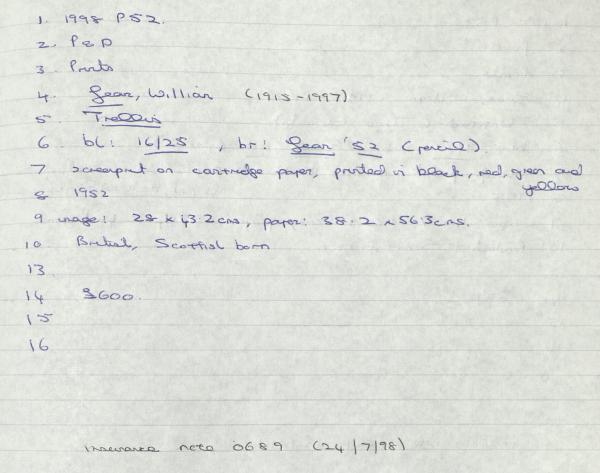 1. 1998 P52.
2. P & D
3 Prints
4. Gear, William (1915-1997)
5. Trellis
6 bl: 16/25 , br: Gear '52 (pencil).
7 screenprint on cartridge paper, printed in black, red, green and
yellow
8 1952
9 image: 28 x 43.2cms, paper: 38.2 x 56.3cms.
10 British, Scottish born
13
14 £600.
15
16
insurance note 0689 (24/7/98)